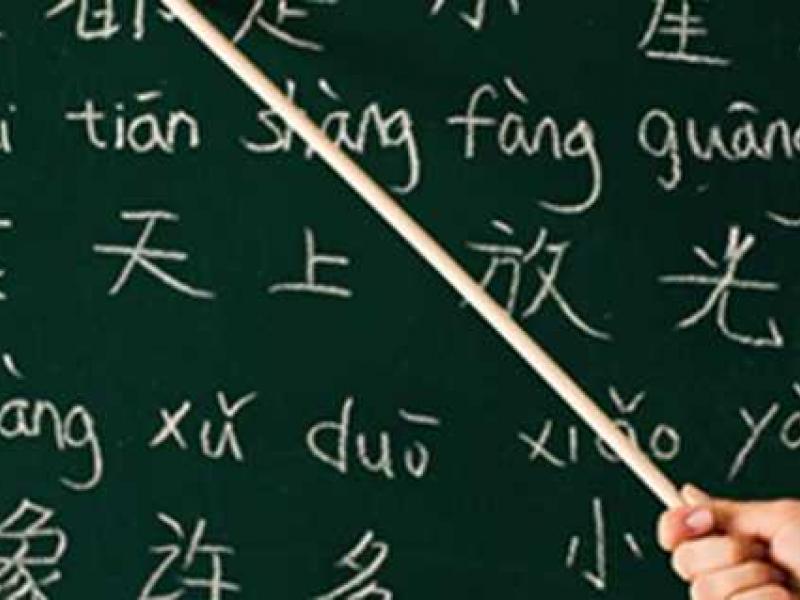 都是小星
tiān shàng fàng guāng
天上放光
xǔ duō xiǎo
像许多小